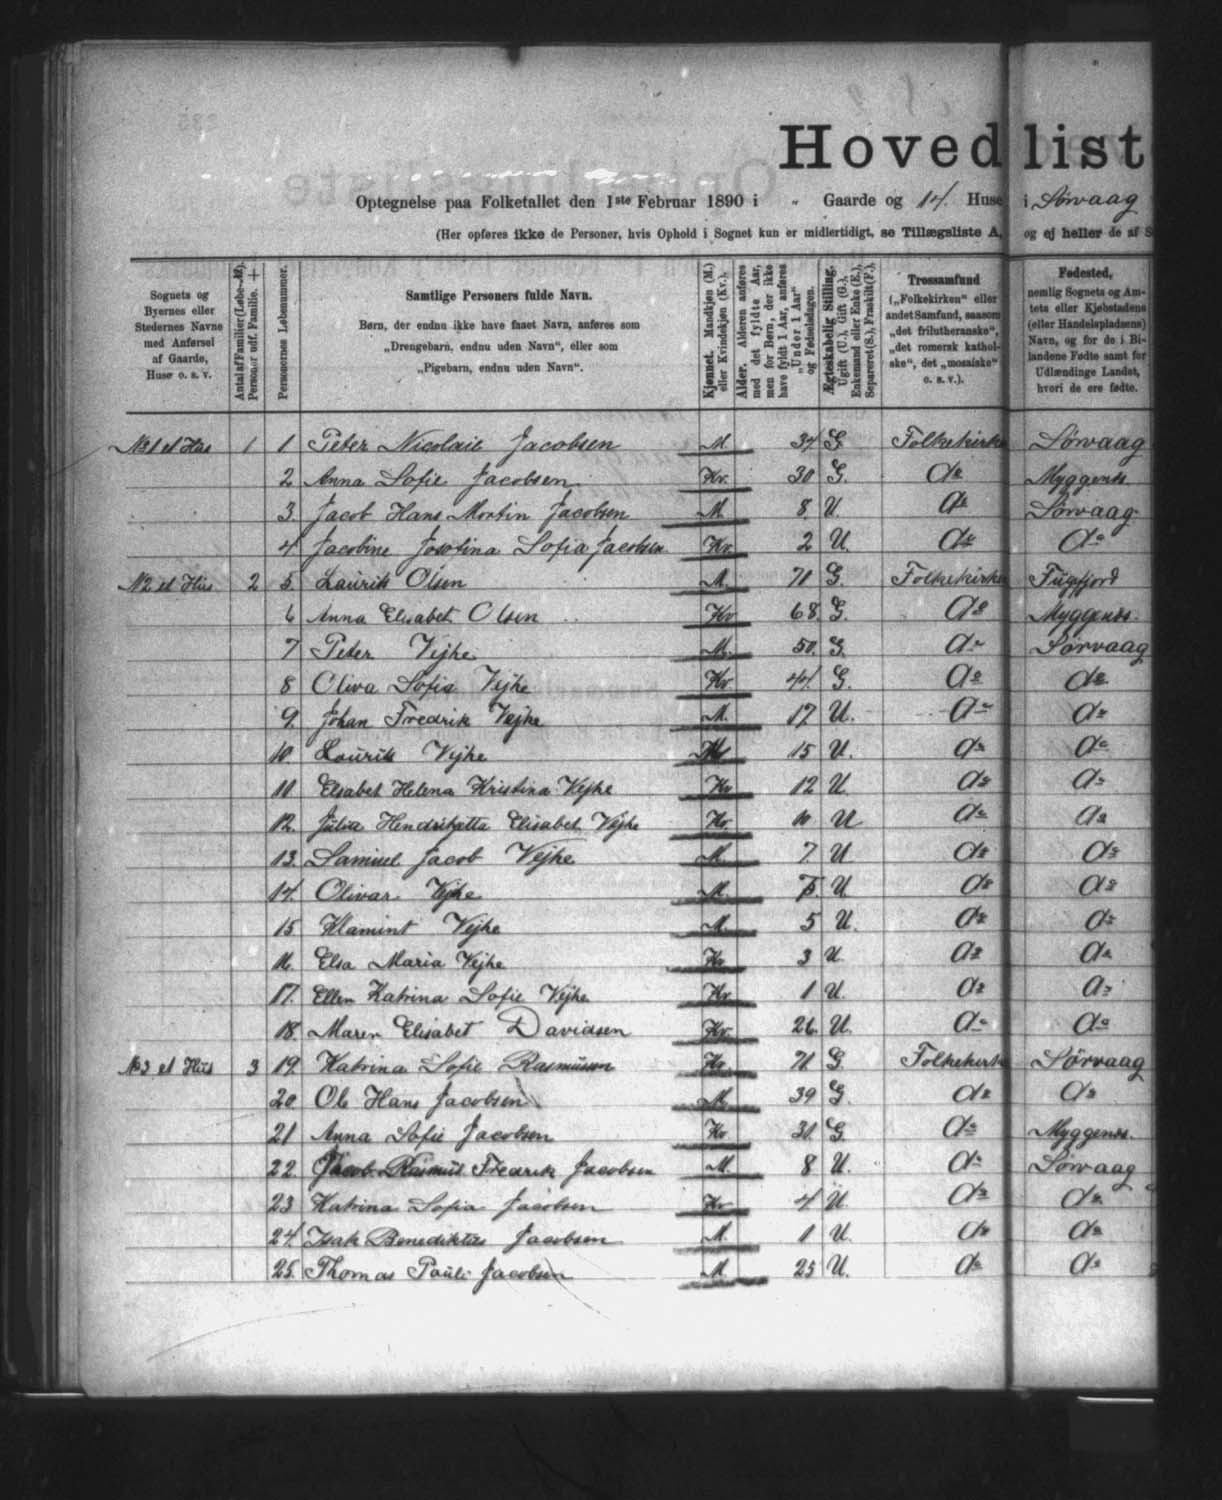 Hovedlist
Optegnelse paa Folketallet den 1ste Februar 1890 i " Gaarde og 14. Huse i Sørvaag
(Her opføres ikke de Personer, hvis Ophold i Sognet kun er midlertidigt, se Tillægsliste A, og ej heller de af S
Sognets og Byernes eller Stedernes Navne med Anførsel af Gaarde, Huse o. s. v.
Antal af Familier (Løbe-№). Personer udf. Familie. +
Personernes Løbenummer.
Samtlige Personers fulde Navn.
Børn, der endnu ikke have faaet Navn, anføres som
„Drengebarn, endnu uden Navn“, eller som
„Pigebarn, endnu uden Navn“.
Kjønnet. Mandkjøn (M.) eller Kvindekjøn (Kv.).
Alder. Alderen anføres med det fyldte Aar, men for Børn, der ikke have fyldt 1 Aar, anføres „Under 1 Aar“ og Fødselsdagen.
Ægteskabelig Stilling. Ugift (U.), Gift (G.), Enkemand eller Enke (E.), Separeret (S.), Fraskilt (F.).
Trossamfund („Folkekirken“ eller andet Samfund, saasom „det frilutheranske“, „det romersk katholske“, det „mosaiske“ o. s. v.).
Fødested, nemlig Sognets og Amtets eller Kjøbstadens (eller Handelspladsens) Navn, og for de i Bilandene Fødte samt for Udlændinge Landet, hvori de ere fødte.
№1 et Hus 1 1 Peter Nicolaie Jacobsen M. 34 G. Folkekirke Sørvaag
2 Anna Sofie Jacobsen Kv. 30 G. do Myggenæs
3. Jacob Hans Mortin Jacobsen M. 8. U. do Sørvaag
4. Jacobine Josofina Sofia Jacobsen Kv. 2 U. do do
№2 et Hus 2 5. Laurits Olsen M. 71 G. Folkekirke Fugefjord
6 Anna Elisabet Olsen Kv 68. G. do Myggenæs
7 Peter Vejhe M. 50. G. do Sørvaag
8 Oliva Sofia Vejhe Kv. 44. G. do do
9. Johan Fredrik Vejhe M. 17 U. do do
10. Laurits Vejhe M 15 U. do do
11 Elsabet Helena Kristina Vejhe Kv 12 U. do do
12. Hendrikjetta Elisabet Vejhe Kv. 10 U do do
13. Samuel Jacob Vejhe M 7 U do do
14. Olivar Vejhe M. U. do do
15 Klamint Vejhe M. 5 U. do do
16. Elsa Maria Vejhe Kv 3 U. do do
17. Ellen Katrina Sofie Vejhe Kv 1 U. do do
18. Maren Elisabet Davidsen Kv. 26. U. do do
№3 et Hus 3 19. Katrina Sofie Rasmussen Kv. 71 G. Folkekirke Sørvaag
20. Ole Hans Jacobsen M. 39 G. do do
21 Anna Sofie Jacobsen Kv 30. G. do Myggenæs.
22. Jacob Rasmus Fredrik Jacobsen M. 8 U. do Sørvaag
23 Katrina Sofia Jacobsen Kv. 4 U. do do
24. Isak Benediktus Jacobsen M. 1 U. do do
25. Thomas Pauli Jacobsen M. 25 U. do do